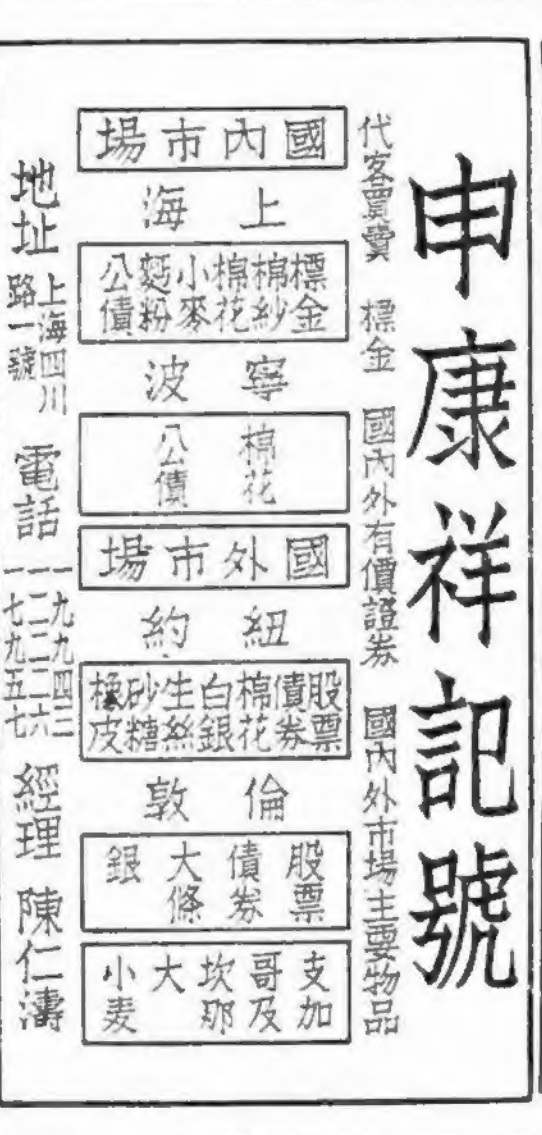 申康祥記號
代客買賣 標金 國內外有價證券 國內外市場主要物品
國內市場
上海
標金
棉紗
棉花
小麥
麫粉
公債
寧波
棉花
公債
國外市場
紐約
股票
債券
棉花
白銀
生絲
砂糖
橡皮
倫敦
股票
債券
大條
銀
支加
哥及
坎那
大
小麦
地址 上海四川
路一號
電話 一九九四三
一二二二六
一七九五七
經理 陳仁濤